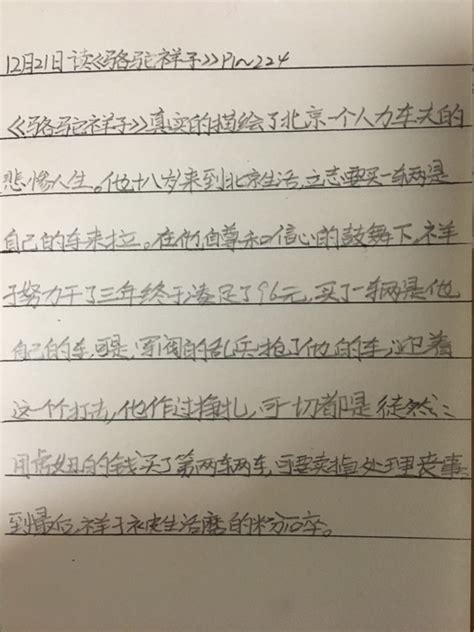 12月21日读《骆驼祥子》P1~224
《骆驼祥子》真实的描绘了北京一个人力车夫的
悲惨人生。他十八岁来到北京生活,立志要买一车两是
自己的车来拉。在们自尊和信心的鼓舞下,祥
子努力干了三年终于凑足了96元,买了一车两是他
自己的车,可是,军阀的乱兵抢了他的车,迎着
这个打击,他作过挣扎,可一切都是徒然:
用虎妞的钱买了第两车两车,可要卖掉处理丧事
到最后,祥子被生活磨的粉碎。